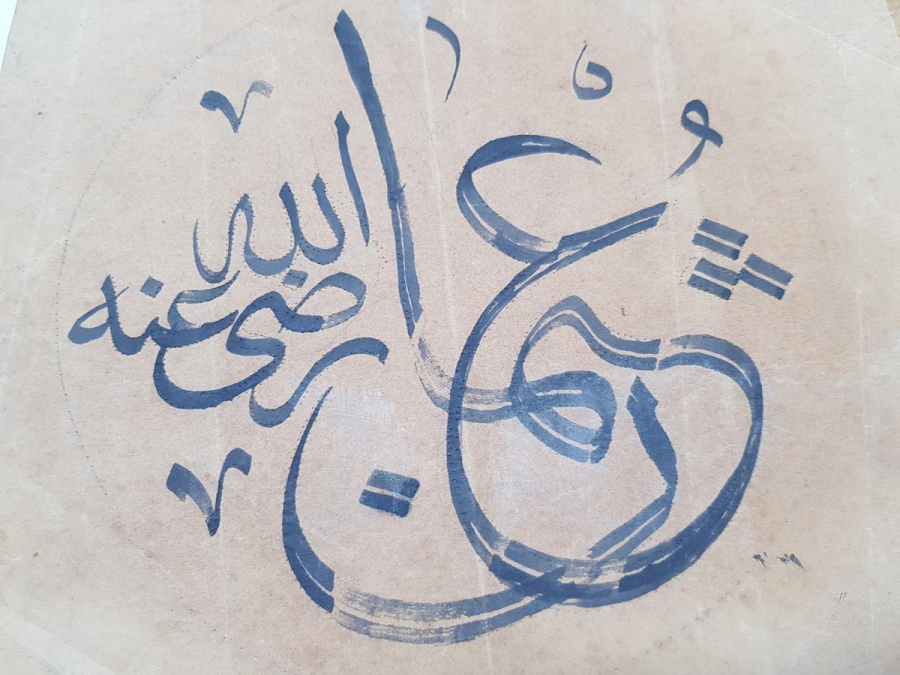 عُثْمان
رضى الله عنه